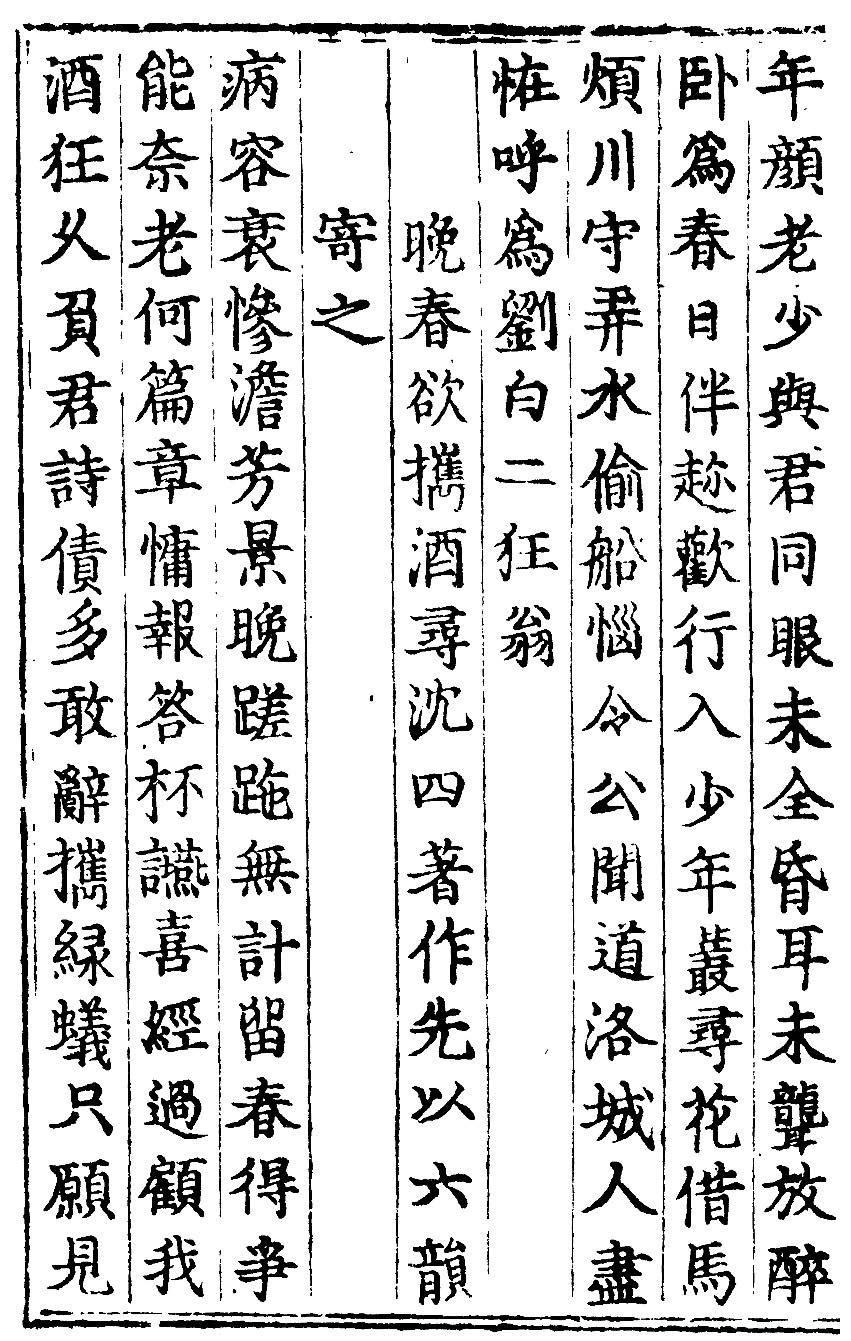 年顔老少與君同眼未全昏耳未聾放醉
卧為春日伴趂歡行入少年叢尋花借馬
煩川守弄水偷船惱令公聞道洛城人盡
恠呼為劉白二狂翁
晚春欲攜酒尋沈四著作先以六韻
寄之
病容衰慘澹芳景晚蹉跎無計留春得爭
能奈老何篇章慵報答杯讌喜經過顧我
酒狂久負君詩債多敢辭攜緑蟻只願見